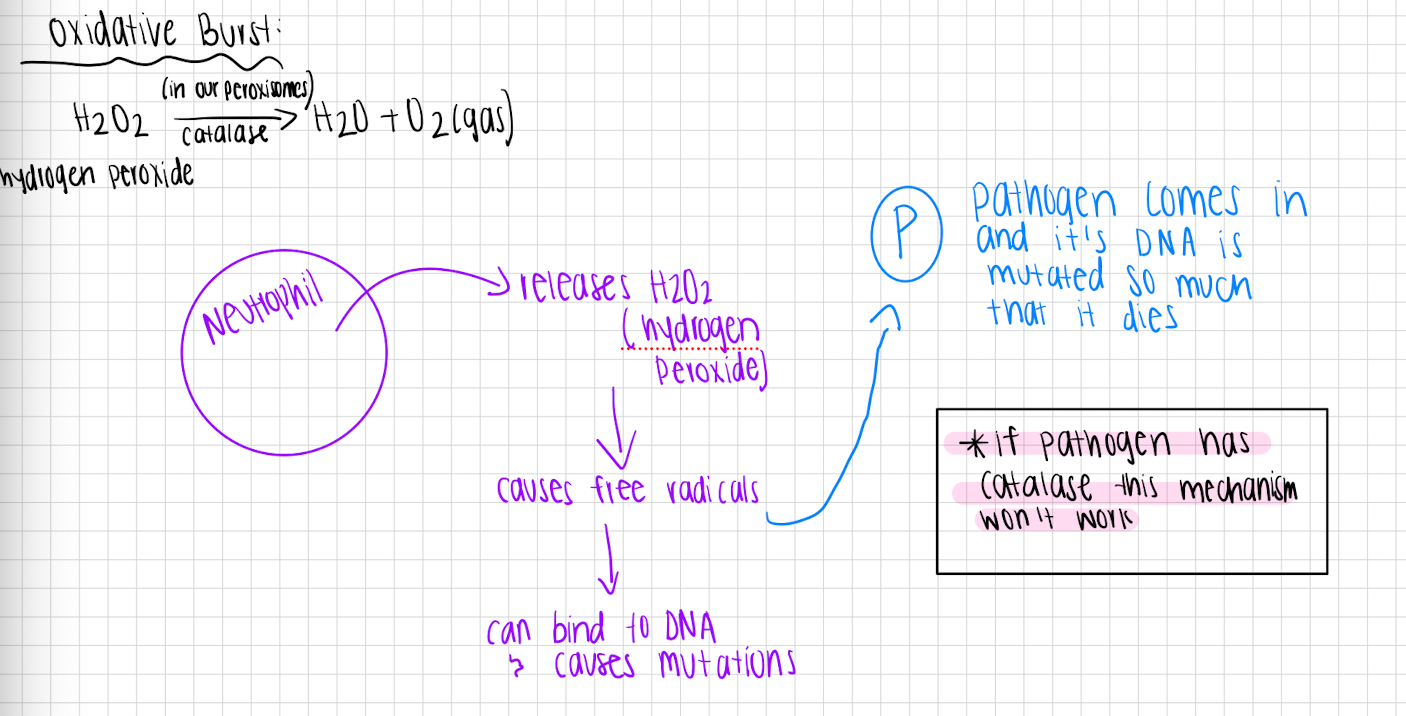 Oxidative Burst:
(in our peroxisomes)
H2O2 → H2O + O2 (gas)
catalase
hydrogen peroxide
P
pathogen comes in
and it's DNA is
mutated so much
that it dies
Neutrophil
releases H2O2
(hydrogen
peroxide)
*if pathogen has
catalase this mechanism
won't work
causes free radicals
can bind to DNA
↳ causes mutations